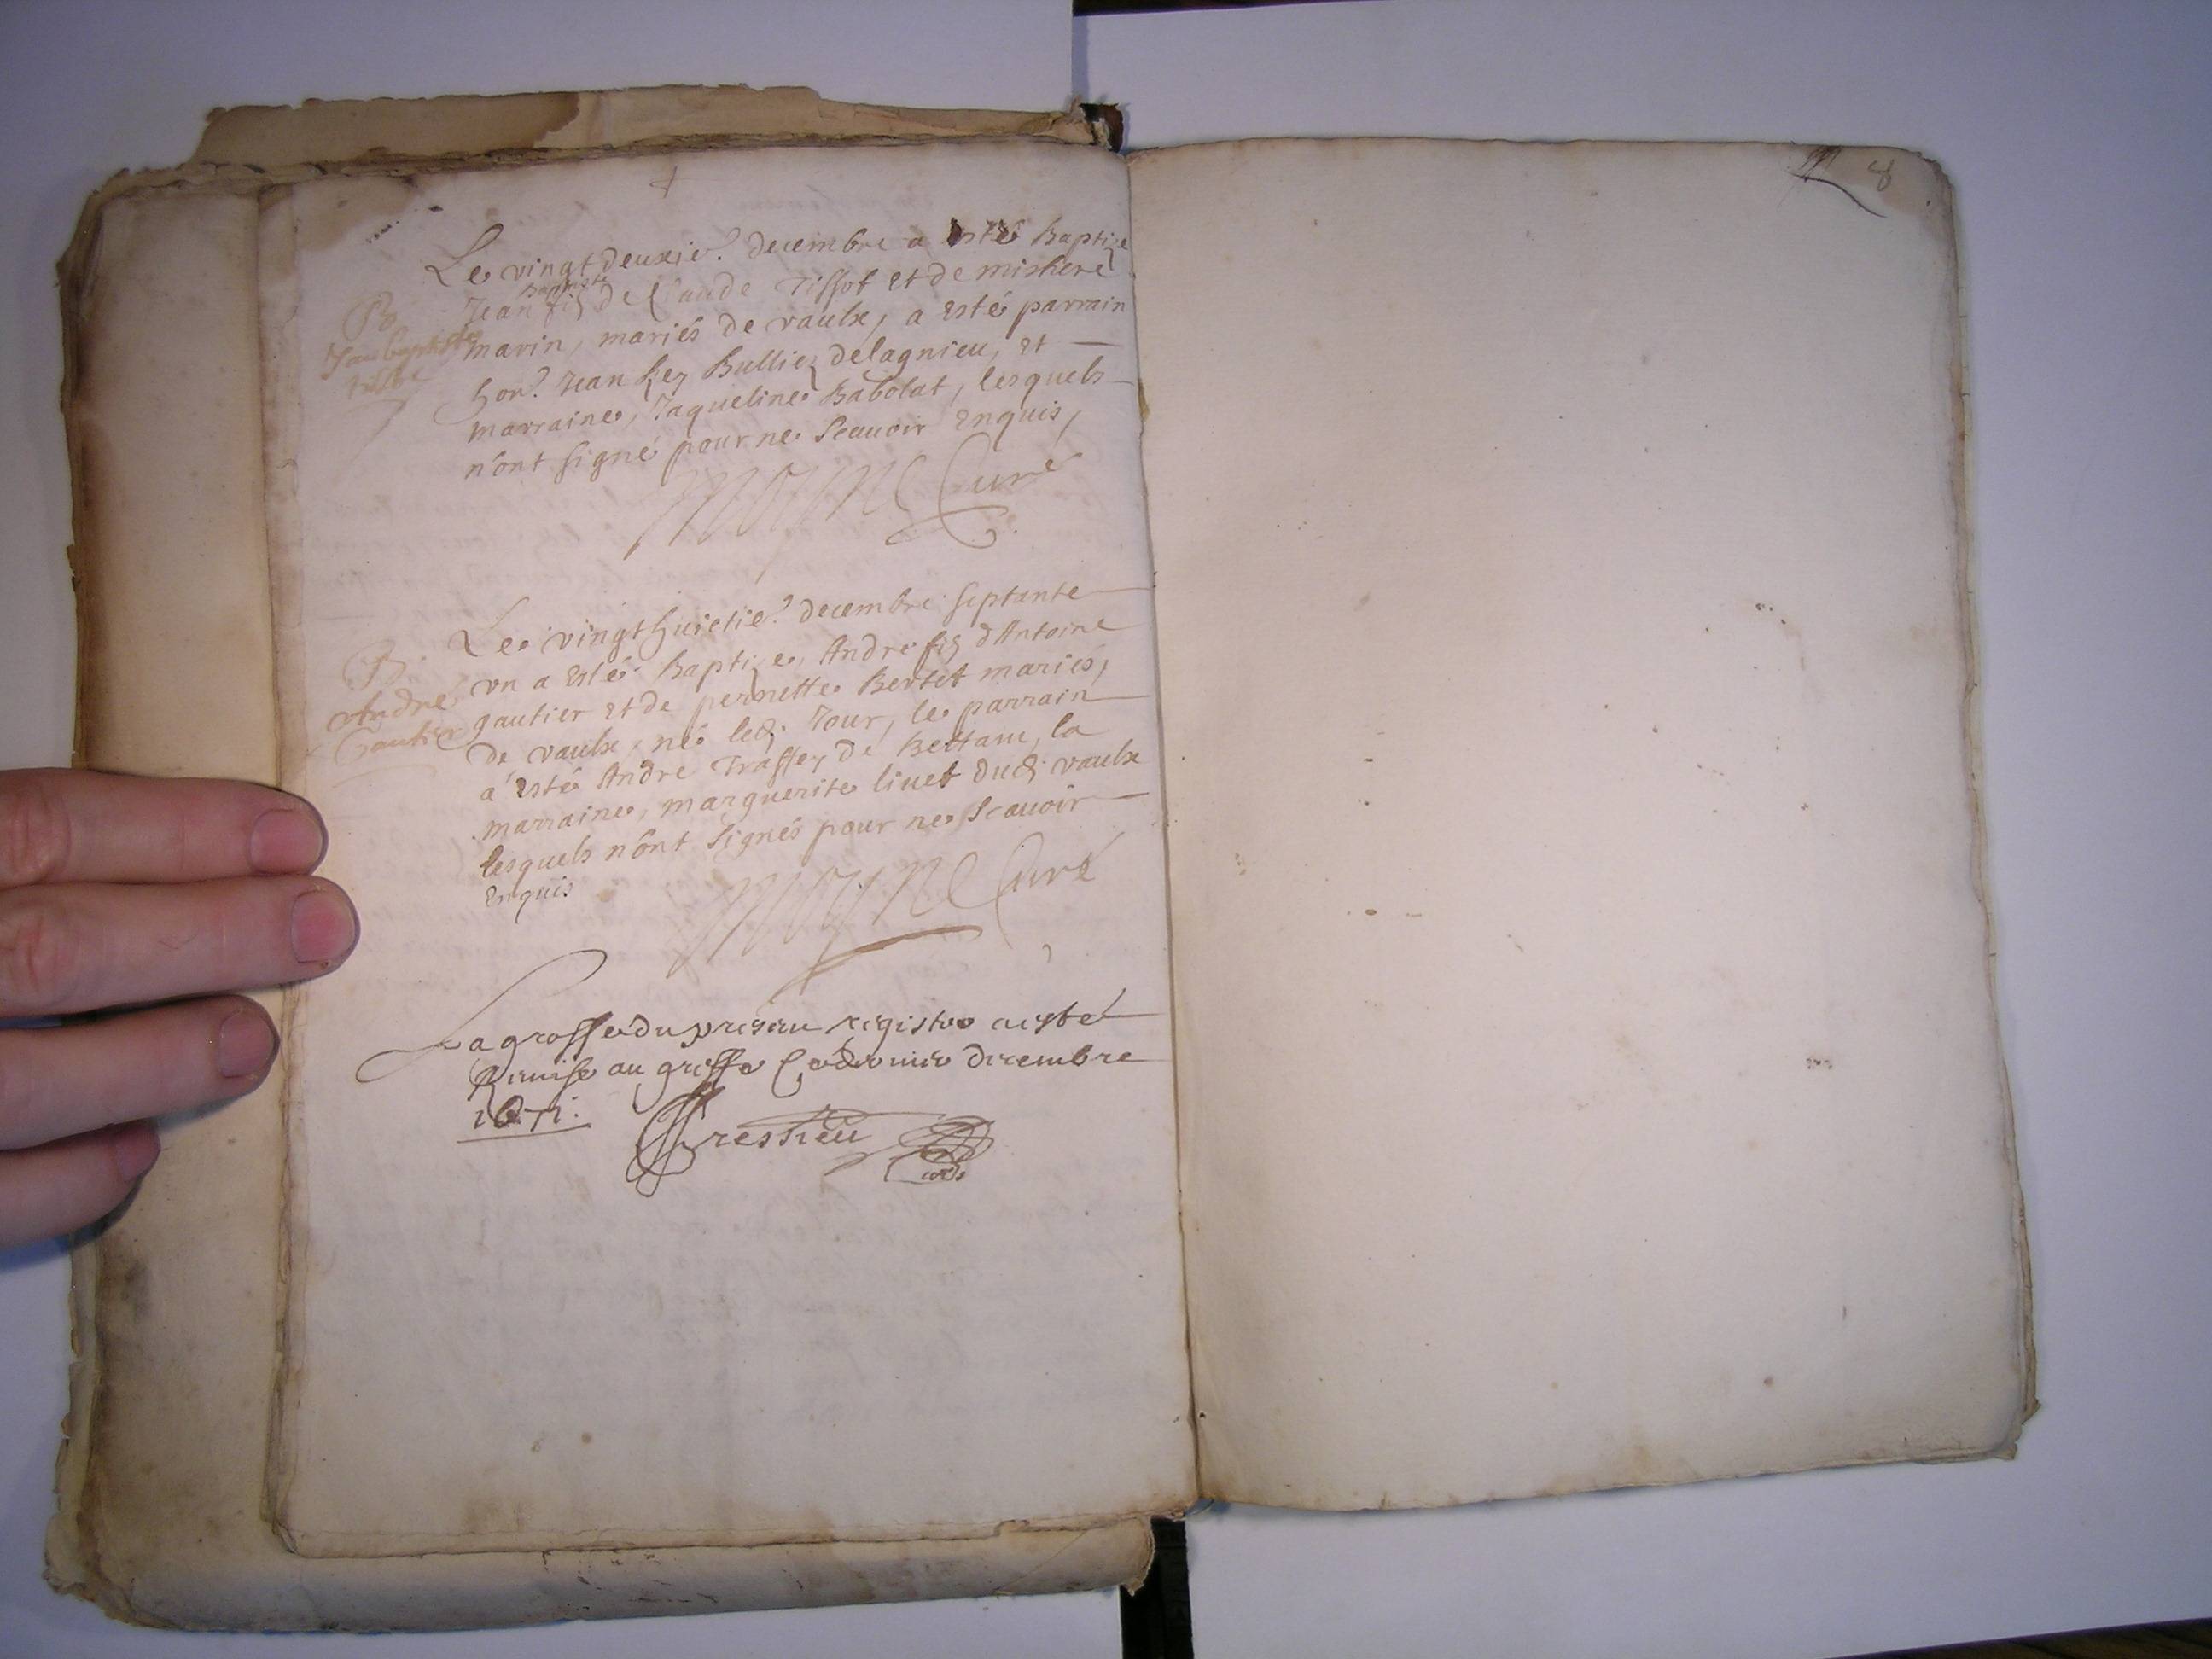 Le vingtdeuxie. decembre a esté Baptize
Jean Baptiste fis de Claude Tissot et de
marin, mariés de vaulx, a esté parrain
hon. Jean Bulliez delagnieu, et
marraine, Jaqueline Babolat, lesquels
n'ont signé pour ne scauoir Enquis,
B
Jean baptiste
Curé
Le vingthuictie. decembre septante
un a esté Baptize, Andre fis d'Antoine
gautier et de pernette Bertet mariés,
de vaulx, né led. Jour, le parrain
a esté Andre de Bettam, la
marraine, marguerite liuet dud. vaulx
lesquels n'ont signés pour ne scauoir
Enquis
B.
André
Gautier
Curé
La grosse du present registre a esté
Remise au greffe Ce dernier decembre
1671.
8